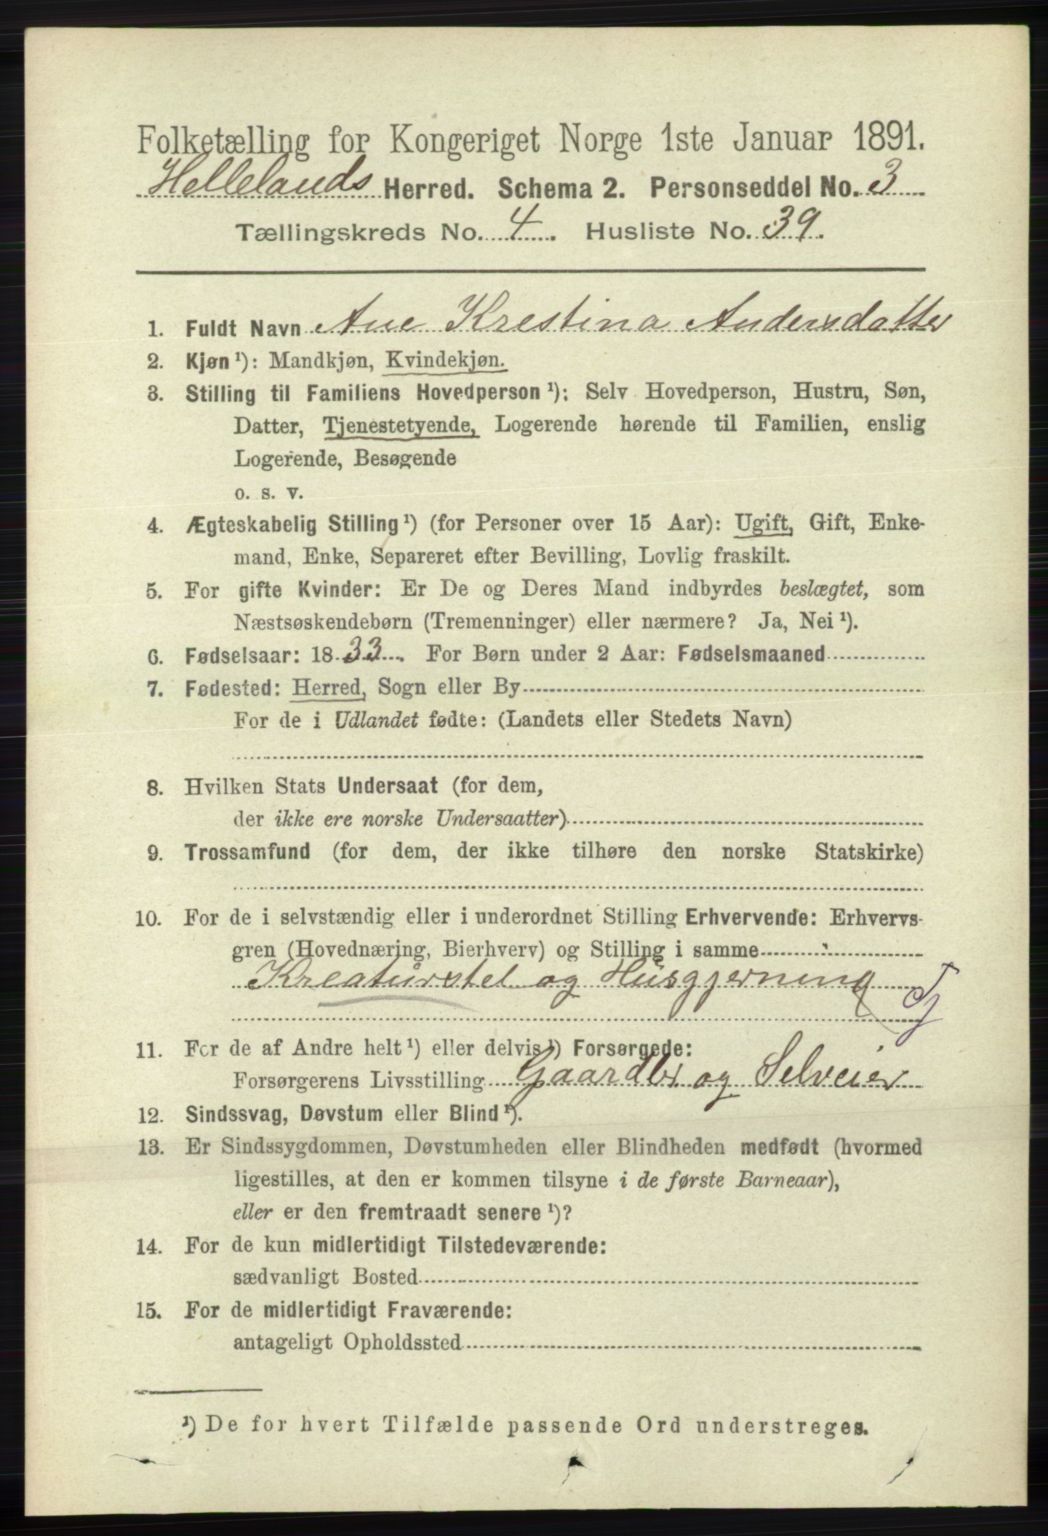 Folketælling for Kongeriget Norge 1ste Januar 1891.
Hellelands Herred. Schema 2. Personseddel No. 3
Tællingskreds No. 4. Husliste No. 39.
1. Fuldt Navn Ane Krestina Andersdatter
2. Kjøn ¹): Mandkjøn, Kvindekjøn.
3. Stilling til Familiens Hovedperson ¹): Selv Hovedperson, Hustru, Søn,
Datter, Tjenestetyende, Logerende hørende til Familien, enslig
Logerende, Besøgende
o. s. v.
4. Ægteskabelig Stilling ¹) (for Personer over 15 Aar): Ugift, Gift, Enke-
mand, Enke, Separeret efter Bevilling, Lovlig fraskilt.
5. For gifte Kvinder: Er De og Deres Mand indbyrdes beslægtet, som
Næstsøskendebørn (Tremenninger) eller nærmere? Ja, Nei ¹).
6. Fødselsaar: 1833. For Børn under 2 Aar: Fødselsmaaned
7. Fødested: Herred, Sogn eller By
For de i Udlandet fødte: (Landets eller Stedets Navn)
8. Hvilken Stats Undersaat (for dem,
der ikke ere norske Undersaatter)
9. Trossamfund (for dem, der ikke tilhøre den norske Statskirke)
10. For de i selvstændig eller i underordnet Stilling Erhvervende: Erhvervs-
gren (Hovednæring, Bierhverv) og Stilling i samme
Kreaturstel og Husgjerning Tj
11. For de af Andre helt ¹) eller delvis ¹) Forsørgede:
Forsørgerens Livsstilling Gaardbr og Selveier
12. Sindssvag, Døvstum eller Blind ¹).
13. Er Sindssygdommen, Døvstumheden eller Blindheden medfødt (hvormed
ligestilles, at den er kommen tilsyne i de første Barneaar),
eller er den fremtraadt senere ¹)?
14. For de kun midlertidigt Tilstedeværende:
sædvanligt Bosted
15. For de midlertidigt Fraværende:
antageligt Opholdssted
¹) De for hvert Tilfælde passende Ord understreges.